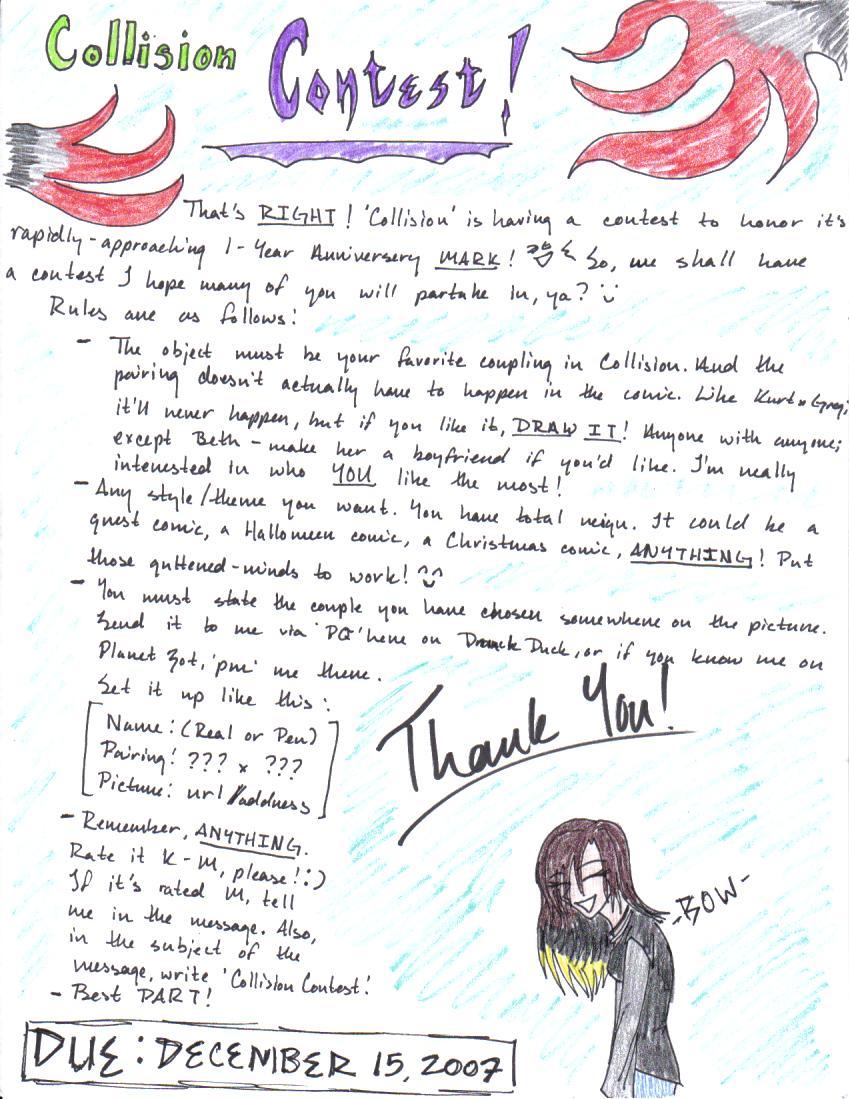 Collision Contest!
That's RIGHT! 'Collision' is having a contest to honor it's
rapidly-approaching 1-Year Anniversery MARK! So, we shall have
a contest I hope many of you will partake in, ya?
Rules are as follows:
- The object must be your favorite coupling in Collision. And the
pairing doesn't actually have to happen in the comic. Like Kurt x Greg;
it'll never happen, but if you like it, DRAW IT! Anyone with anyone;
except Beth - make her a boyfriend if you'd like. I'm really
interested in who YOU like the most!
- Any style/theme you want. You have total reign. It could be a
guest comic, a Halloween comic, a Christmas comic, ANYTHING! Put
those guttened-minds to work! ^^
- You must state the couple you have chosen somewhere on the picture.
Send it to me via 'PQ' here on Drunk Duck, or if you know me on
Planet Zot, 'pm' me there.
Set it up like this:
Name: (Real or Pen)
Pairing: ??? x ???
Picture: url//address
Thank You!
- Remember, ANYTHING.
Rate it K-M, please! :)
If it's rated M, tell
me in the message. Also,
in the subject of the
message, write 'Collision Contest'.
- Best PART!
-BOW-
DUE: DECEMBER 15, 2007